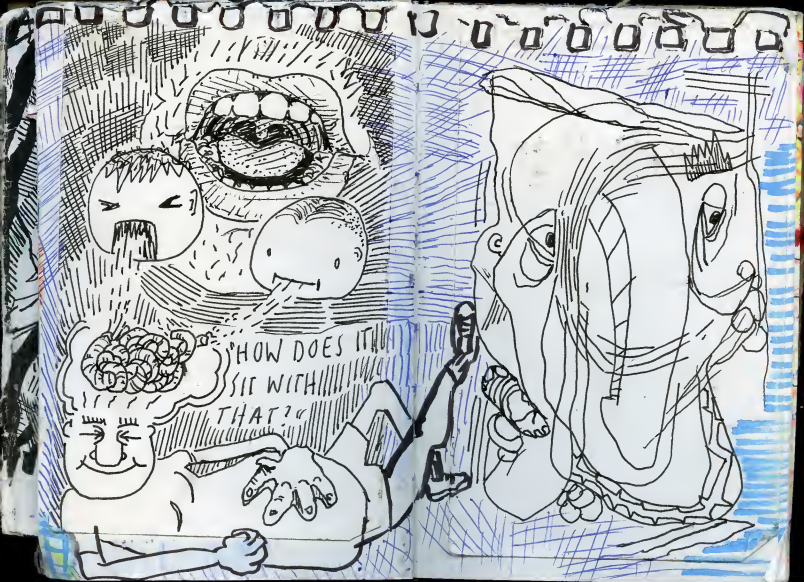 "HOW DOES IT
SIT WITH
THAT?"